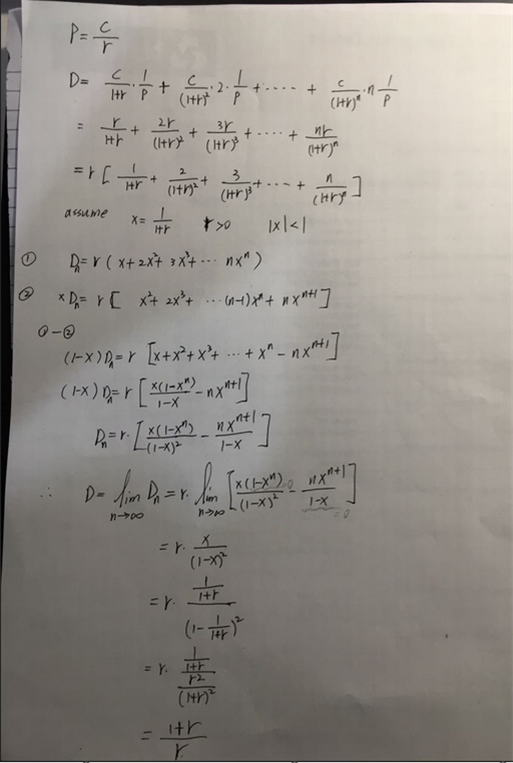 P = c/r
D = c/(1+r) · 1/P + c/(1+r)² · 2 · 1/P + ···· + c/(1+r)ⁿ · n 1/P
= r/(1+r) + 2r/(1+r)² + 3r/(1+r)³ + ···· + nr/(1+r)ⁿ
= r [ 1/(1+r) + 2/(1+r)² + 3/(1+r)³ + ··· + n/(1+r)ⁿ ]
assume x = 1/(1+r) r>0 |x|<1
① Dₙ = r ( x + 2x² + 3x³ + ··· nxⁿ )
② xDₙ = r [ x² + 2x³ + ··· (n-1)xⁿ + nxⁿ⁺¹ ]
①-②
(1-x)Dₙ = r [ x + x² + x³ + ··· + xⁿ - nxⁿ⁺¹ ]
(1-x)Dₙ = r [ x(1-xⁿ)/(1-x) - nxⁿ⁺¹ ]
Dₙ = r · [ x(1-xⁿ)/(1-x)² - nxⁿ⁺¹/(1-x) ]
∴ D = lim n→∞ Dₙ = r · lim n→∞ [ x(1-xⁿ)/(1-x)² - nxⁿ⁺¹/(1-x) ]
=0
=0
= r · x/(1-x)²
= r · (1/(1+r))/(1 - 1/(1+r))²
= r · (1/(1+r))/(r²/(1+r)²)
= (1+r)/r